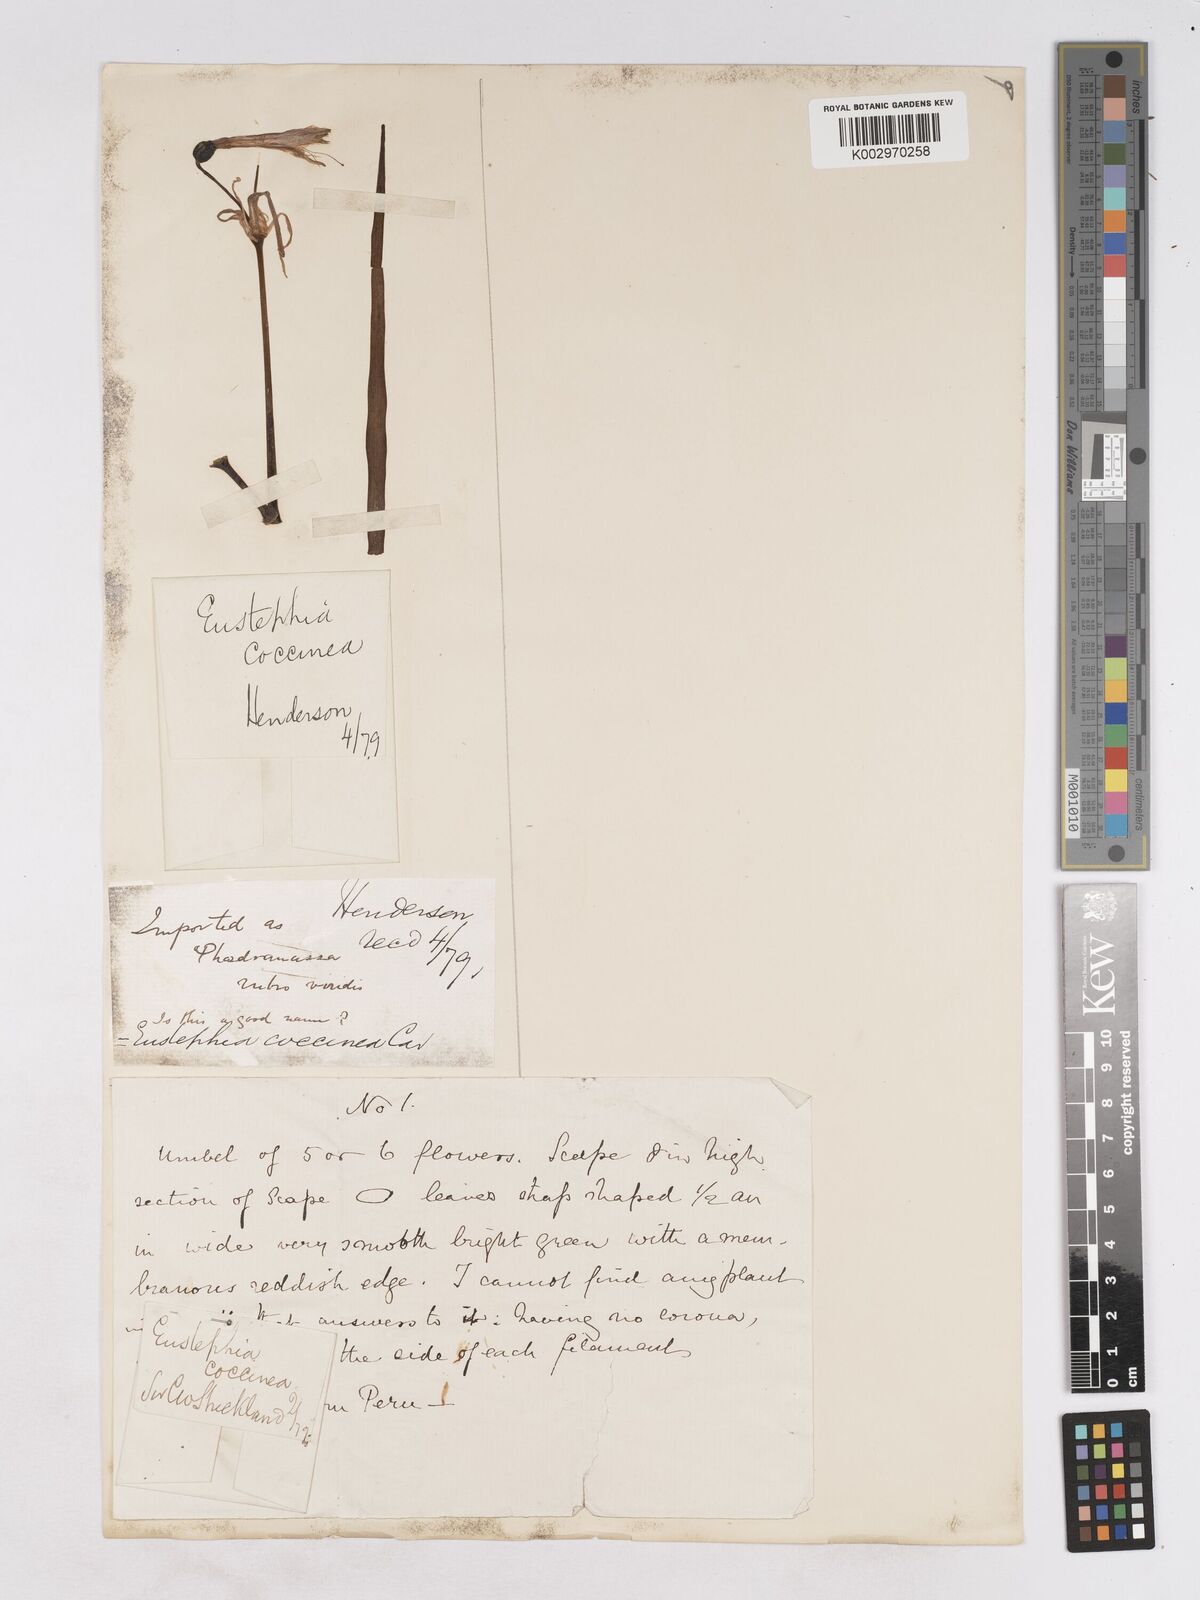 ROYAL BOTANIC GARDENS KEW
K002970258
Eustephia
coccinea
Henderson
4/79
Henderson
recd 4/79,
Imported as
"Phaedranassa
rubro viridis
Is this a good name?
= Eustephia coccinea Cav
No 1.
Umbel of 5 or 6 flowers. Scape 8 in high
section of scape leaves shaped 1/2 an
in wide very smooth bright green with a mem-
branous reddish edge. I cannot find any plant
answers to it: having no corona,
the side of each filament
Peru
Eustephia
coccinea
Sir C W Strickland
inches
Density
Don Williams
M001010
centimeters
Kew
Royal Botanic Gardens
copyright reserved
0 1 2 3 4 5 6 7 8 9 10
cm